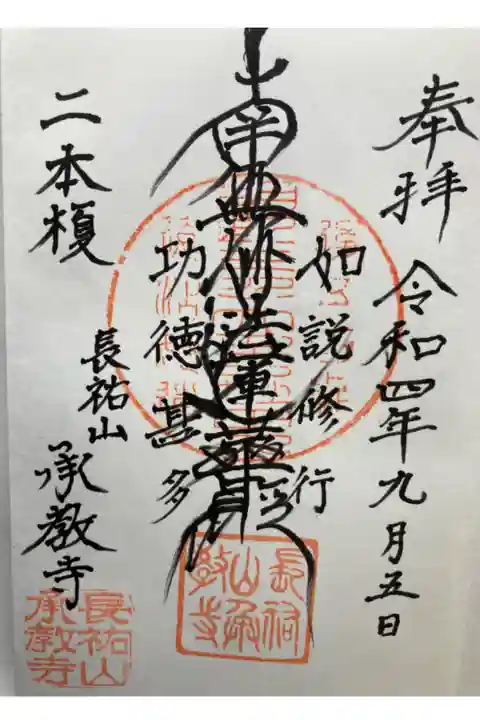 奉拝
令和四年九月五日
如説修行
南無妙法蓮華経
功徳甚多
二本榎
長祐山
承教寺
長祐山承教寺
長祐山
承教寺